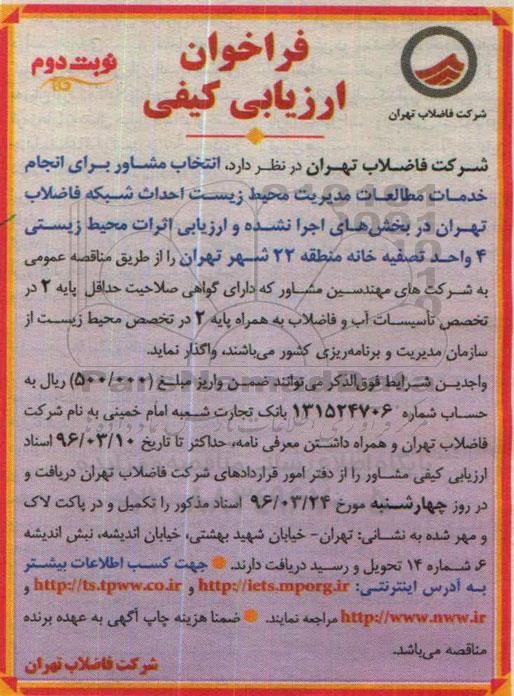 فراخوان
ارزیابی کیفی
نوبت دوم
شرکت فاضلاب تهران
شرکت فاضلاب تهران در نظر دارد، انتخاب مشاور برای انجام
خدمات مطالعات مدیریت محیط زیست احداث شبکه فاضلاب
تهران در بخش‌های اجرا نشده و ارزیابی اثرات محیط زیستی
۴ واحد تصفیه خانه منطقه ۲۲ شهر تهران را از طریق مناقصه عمومی
به شرکت های مهندسین مشاور که دارای گواهی صلاحیت حداقل پایه 2 در
تخصص تأسیسات آب و فاضلاب به همراه پایه 2 در تخصص محیط زیست از
سازمان مدیریت و برنامه‌ریزی کشور می‌باشند، واگذار نماید.
واجدین شرایط فوق‌الذکر می‌توانند ضمن واریز مبلغ (۵۰۰/۰۰۰) ریال به
حساب شماره ۱۳۱۵۲۴۷۰۶ بانک تجارت شعبه امام خمینی به نام شرکت
فاضلاب تهران و همراه داشتن معرفی نامه، حداکثر تا تاریخ ۹۶/۰۳/۱۰ اسناد
ارزیابی کیفی مشاور را از دفتر امور قراردادهای شرکت فاضلاب تهران دریافت و
در روز چهارشنبه مورخ ۹۶/۰۳/۲۴ اسناد مذکور را تکمیل و در پاکت لاک
و مهر شده به نشانی: تهران- خیابان شهید بهشتی، خیابان اندیشه، نبش اندیشه
۶، شماره ۱۴ تحویل و رسید دریافت دارند. جهت کسب اطلاعات بیشتر
به آدرس اینترنتی: http://iets.mporg.ir و http://ts.tpww.co.ir و
http://www.nww.ir مراجعه نمایند. ضمنا هزینه چاپ آگهی به عهده برنده
مناقصه می‌باشد.
شرکت فاضلاب تهران